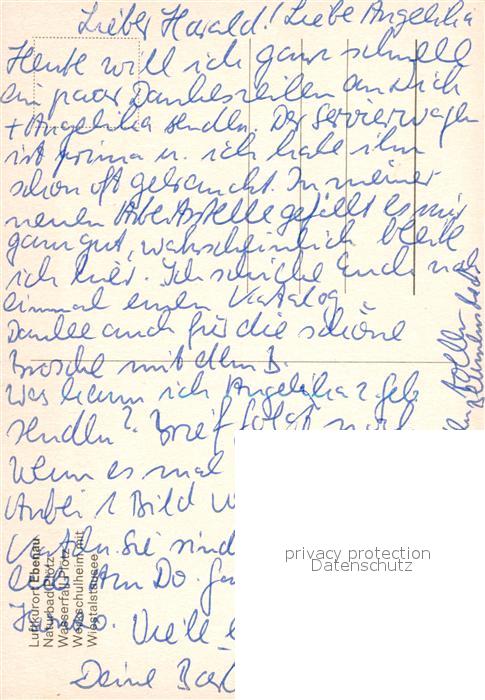 Lieber Harald! Liebe Angelika
Heute will ich ganz schnell
ein paar Dankeszeilen an Dich
+ Angelika senden. Der Servierwagen
ist prima u. ich habe ihn
schon oft gebraucht. In meiner
neuen Arbeitsstelle gefällt es mir
ganz gut, wahrscheinlich bleibe
ich hier. Ich schicke Euch noch
einmal einen Katalog
Danke auch für die schöne
Brosche mit dem B.
Was kann ich Angelika z. Geb
senden? Brief folgt noch
Wenn es mal
Anbei 1 Bild
Sie sind
Am Do.
Viele
Deine
privacy protection
Datenschutz
Luftkurort Ebenau
Naturbad Plötz
Wasserfall Plötz
Werkschulheim mit
Wiestalstausee